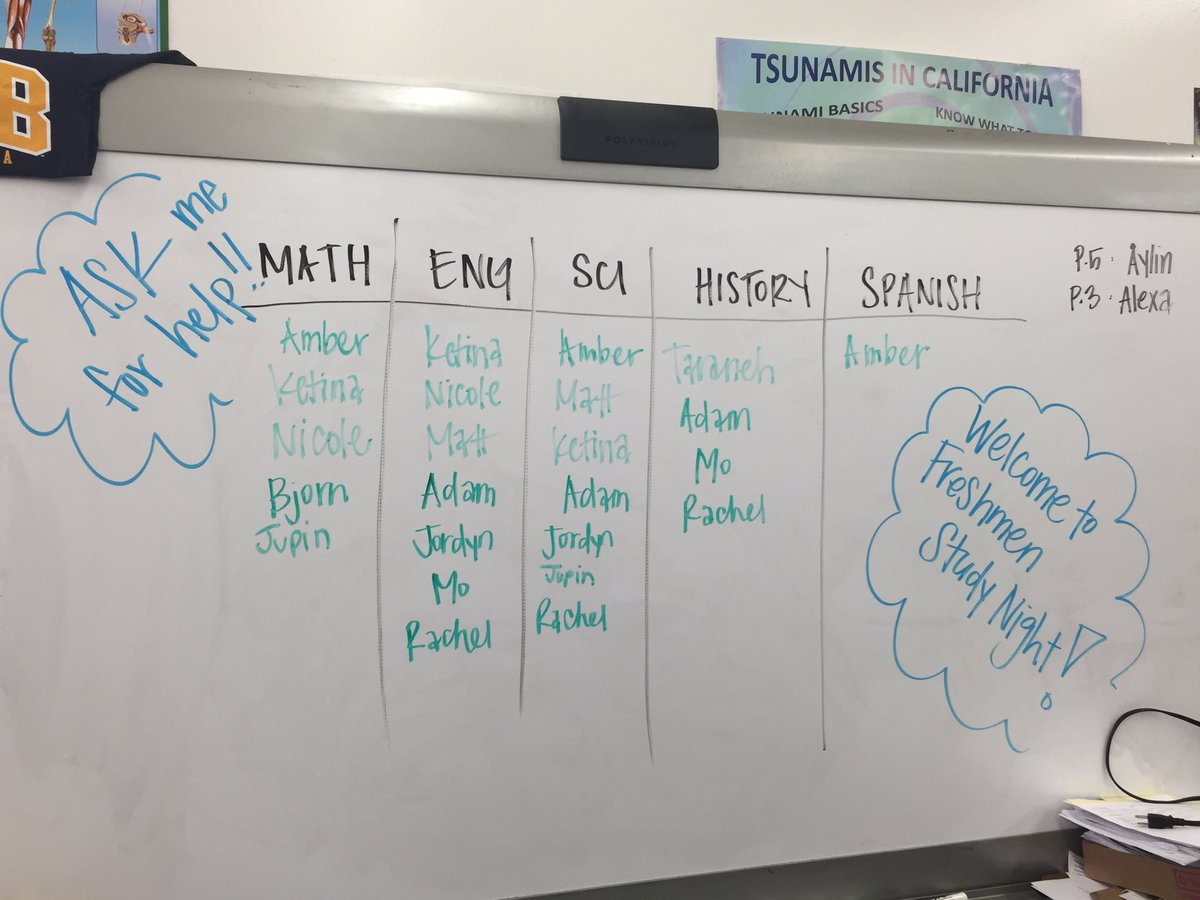 B
A
TSUNAMIS IN CALIFORNIA
UNAMI BASICS
KNOW WHAT TO
POLYVISION
ASK me
for help!!
MATH
Amber
Ketina
Nicole
Bjorn
Jupin
ENG
Ketina
Nicole
Matt
Adam
Jordyn
Mo
Rachel
SCI
Amber
Matt
Ketina
Adam
Jordyn
Jupin
Rachel
HISTORY
Taraneh
Adam
Mo
Rachel
SPANISH
Amber
P.5 · Aylin
P.3 · Alexa
Welcome to
Freshmen
Study Night!